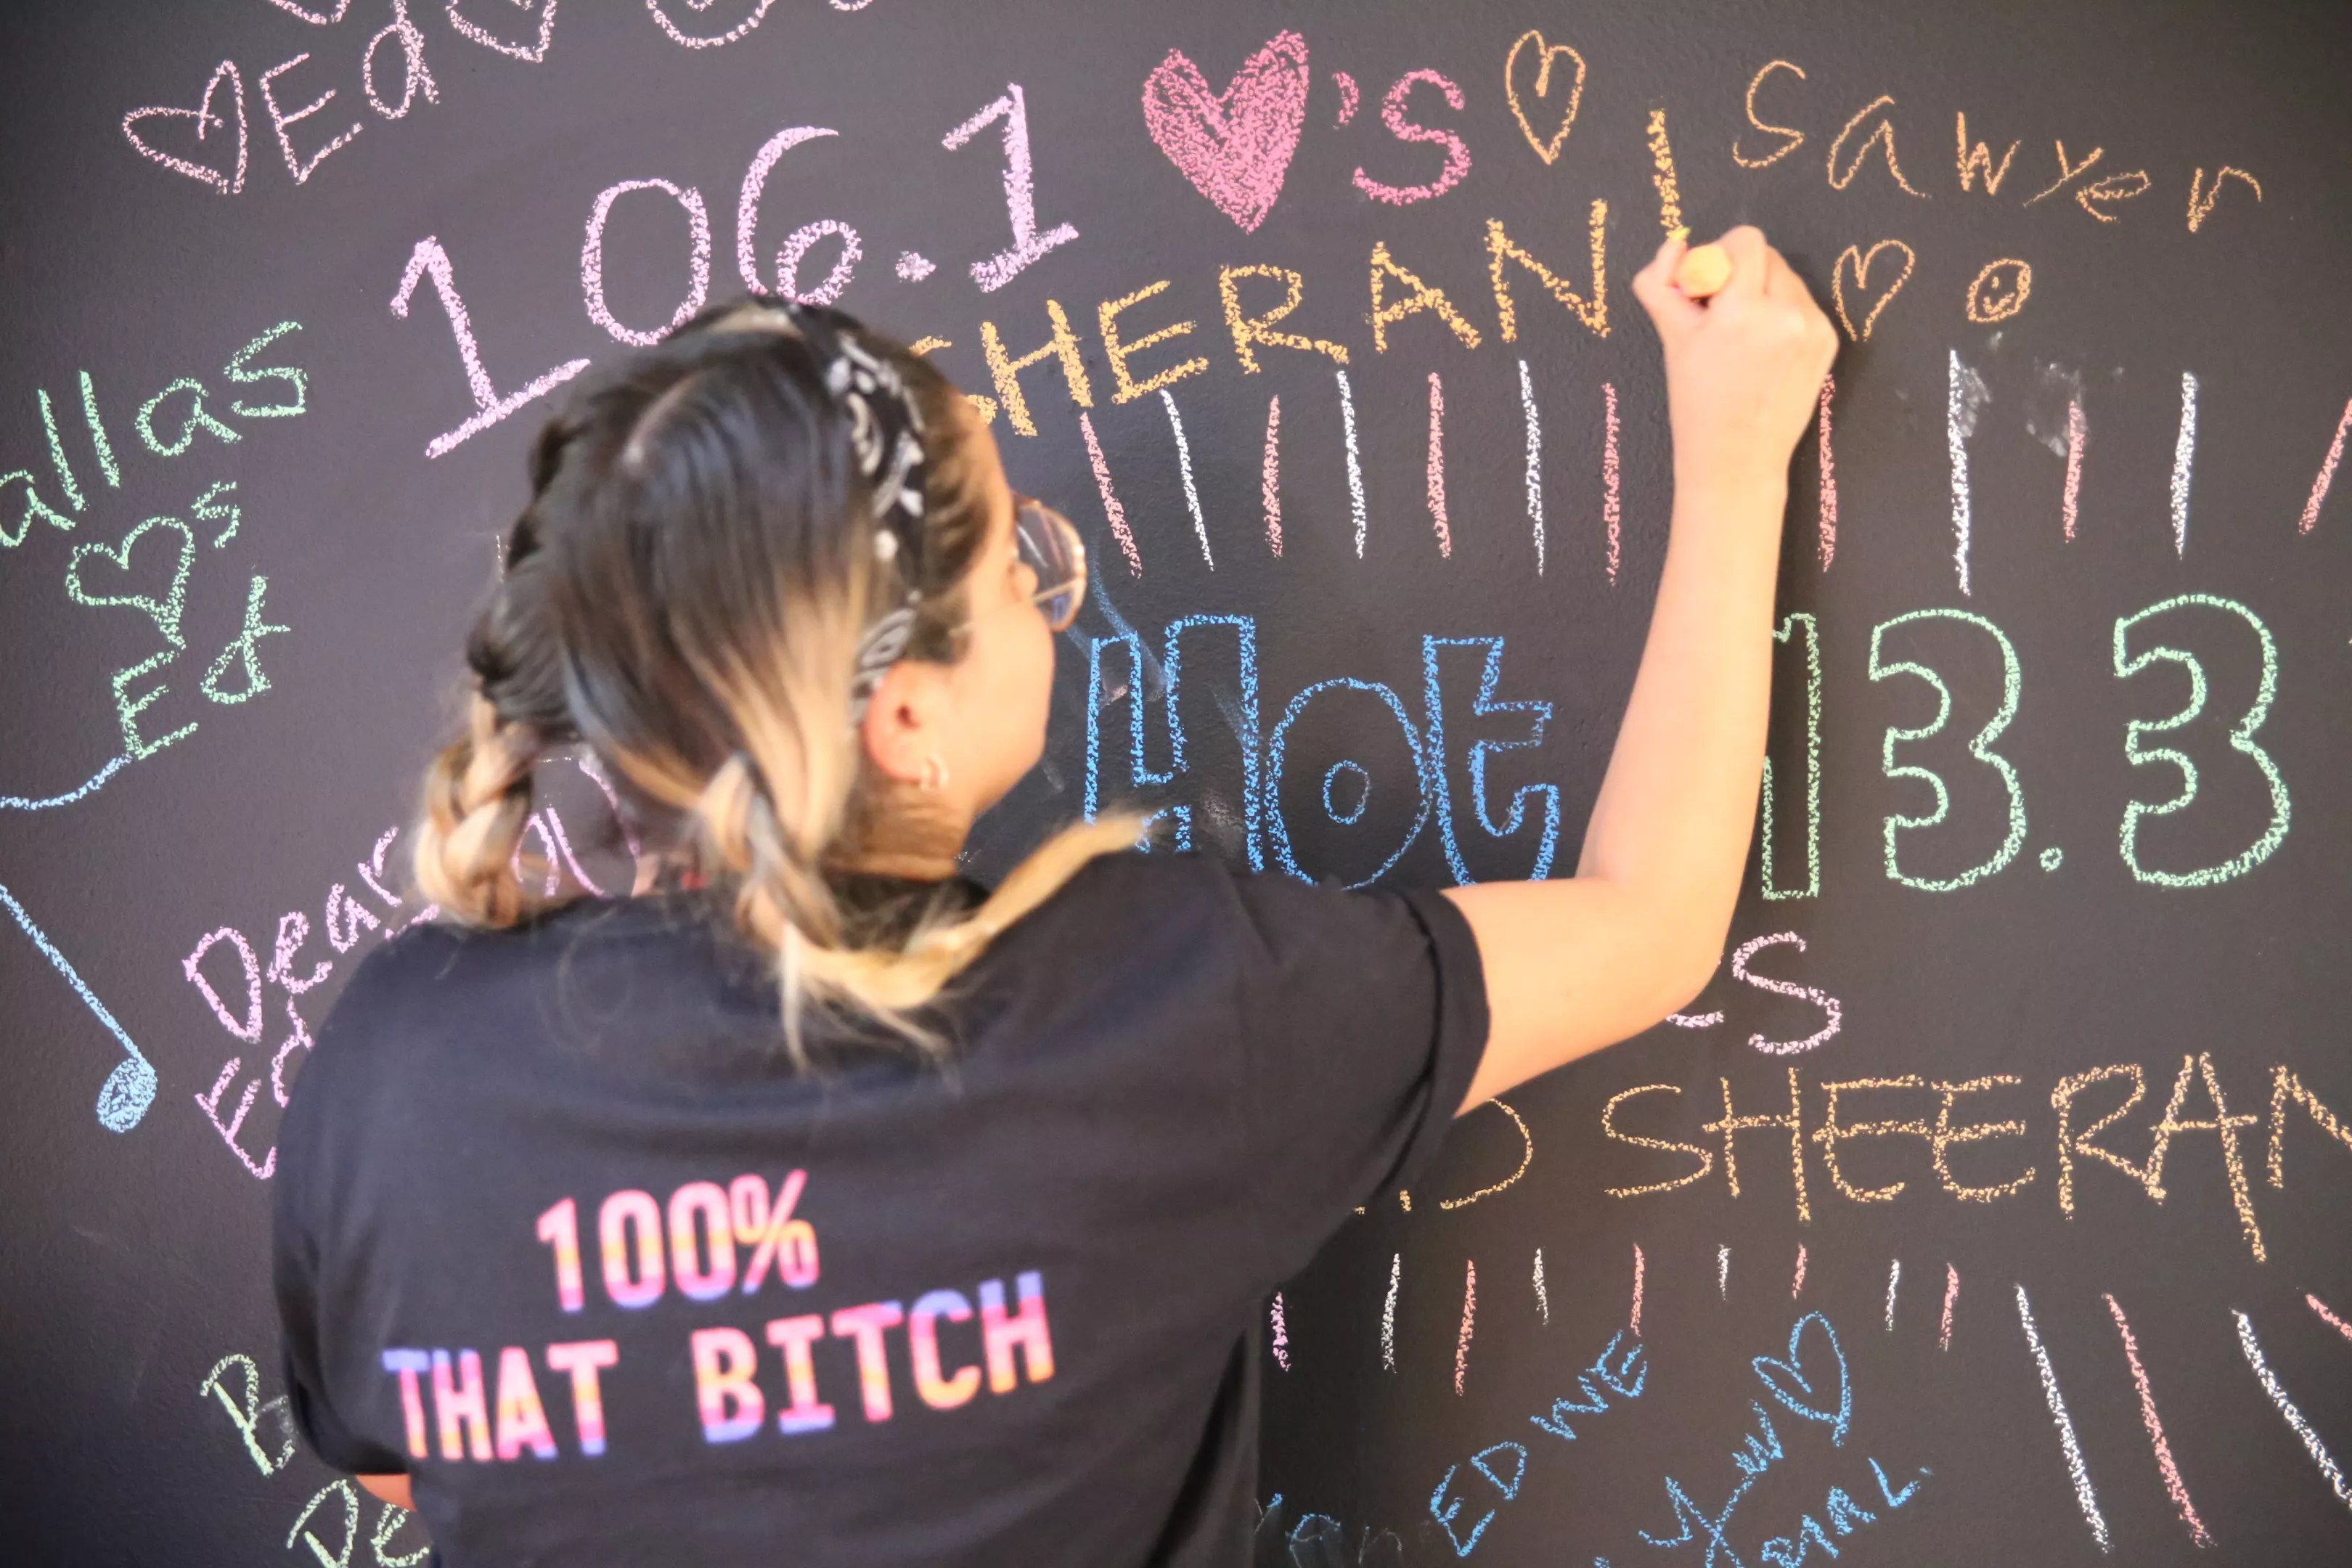 Ed
106.1 ♥'S
♡ sawyer
SHERAN!
allas
♡'s
Ed
Hot 13.3
Dear
S
SHEERAN
100%
THAT BITCH
ED WE